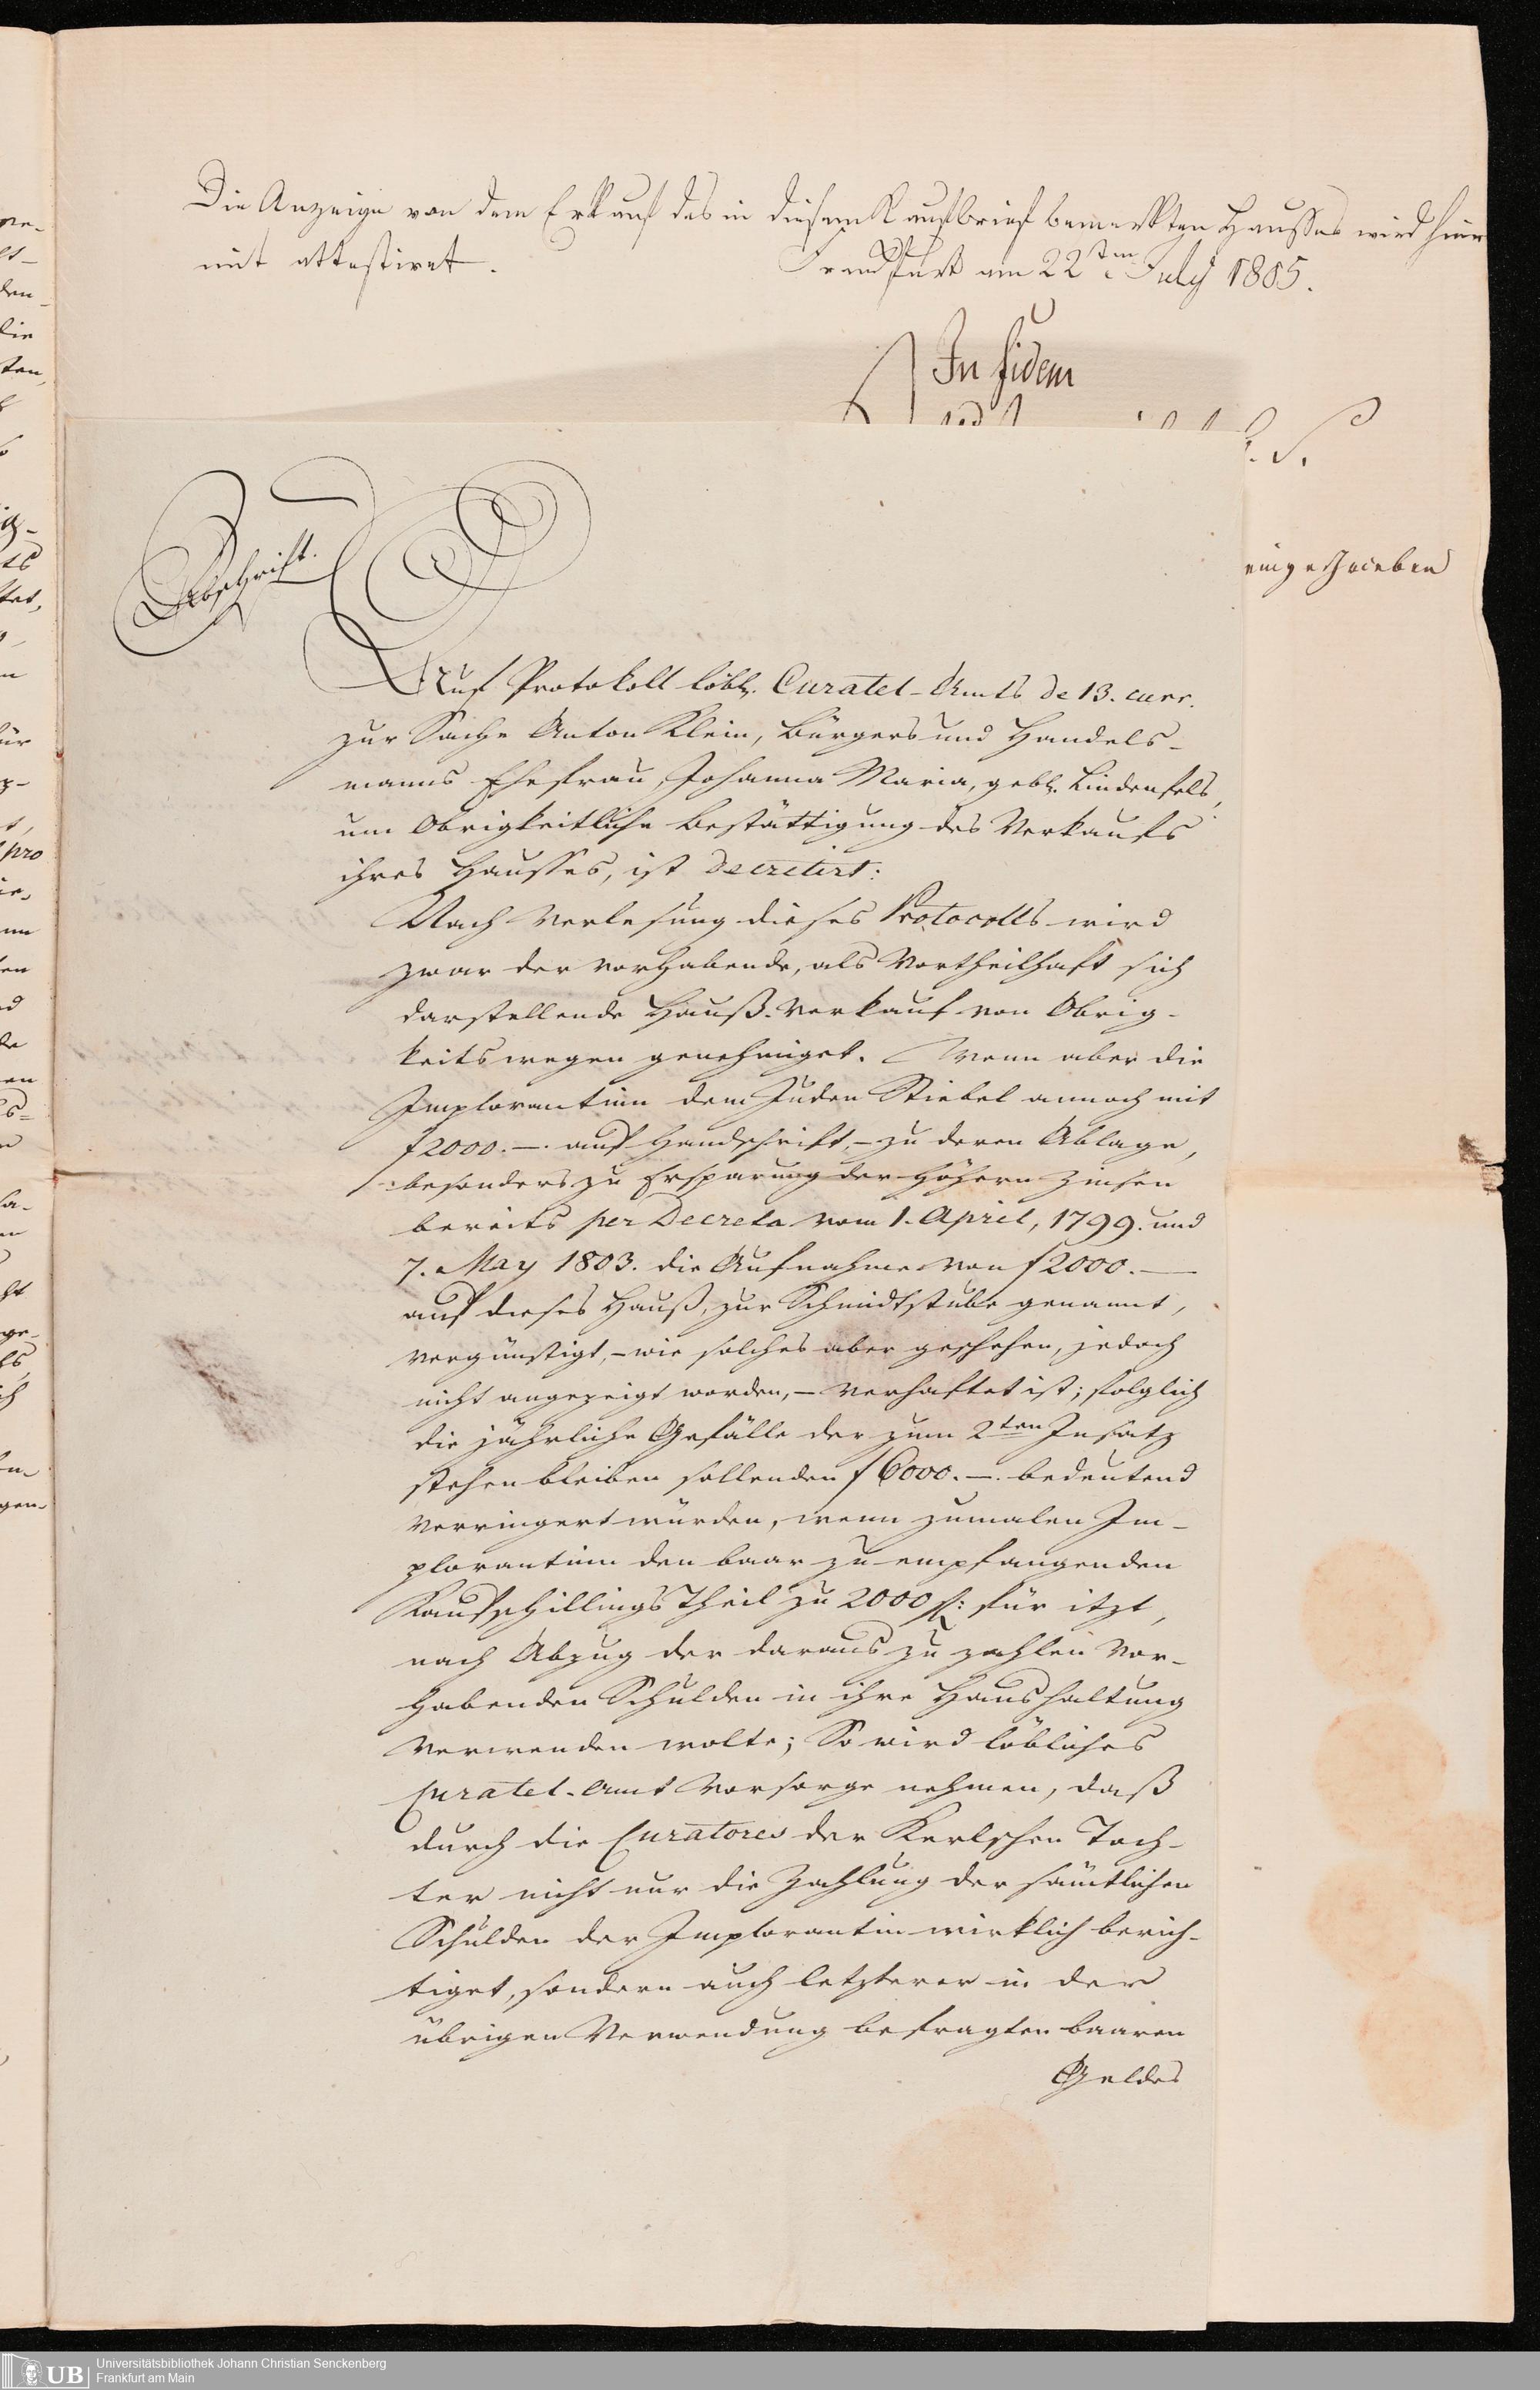 Die Anzeige von dem Erkauf des in diesem Kaufbrief bemerkten Hausses wird hier
mit attestiret.
Frankfurt am 22sten July 1805.
In fidem
L. S.
eingeschrieben
Abschrift.
Auf Protokoll löbl. Curatel-Amts de 13. curr.
zur Sache Anton Klein, Bürgers und Handels-
manns Ehefrau, Johanna Maria, gebl. Lindenfels,
um Obrigkeitliche Bestättigung des Verkaufs
ihres Hausses, ist decretirt:
Nach Verlesung dieses Protocolls wird
zwar der vorhabende, als Vortheilhaft sich
darstellende Hauß-Verkauf von Obrig-
keitswegen genehmiget. Wenn aber die
Implorantinn dem Juden Stiebel annoch mit
f 2000.–. auf Handschrift, – zu deren Ablage,
besonders zu Ersparung der höhern Zinsen
bereits per Decreta vom 1. April, 1799. und
7. May 1803. die Aufnahme von f 2000.—
auf dieses Hauß, zur Schmidtstube genannt,
vergünstigt, – wie solches aber geschehen, jedoch
nicht angezeigt worden, – verhaftet ist; folglich
die jährliche Gefälle der zum 2ten Insatz
stehen bleiben sollenden f 6000.–. bedeutend
verringert würden, wenn zumalen Im-
plorantinn den baar zu empfangenden
Kaufschillings Theil zu 2000 fl: für itzt,
nach Abzug der daraus zu zahlen vor-
habenden Schulden in ihre Haushaltung
verwenden wolte; So wird löbliches
Curatel-Amt Vorsorge nehmen, daß
durch die Curatores der Kerlschen Toch-
ter nicht nur die Zahlung der sämtlichen
Schulden der Implorantin wirklich berich-
tiget, sondern auch letzterer in der
übrigen Verwendung befragten baaren
Geldes
Universitätsbibliothek Johann Christian Senckenberg
Frankfurt am Main
UB